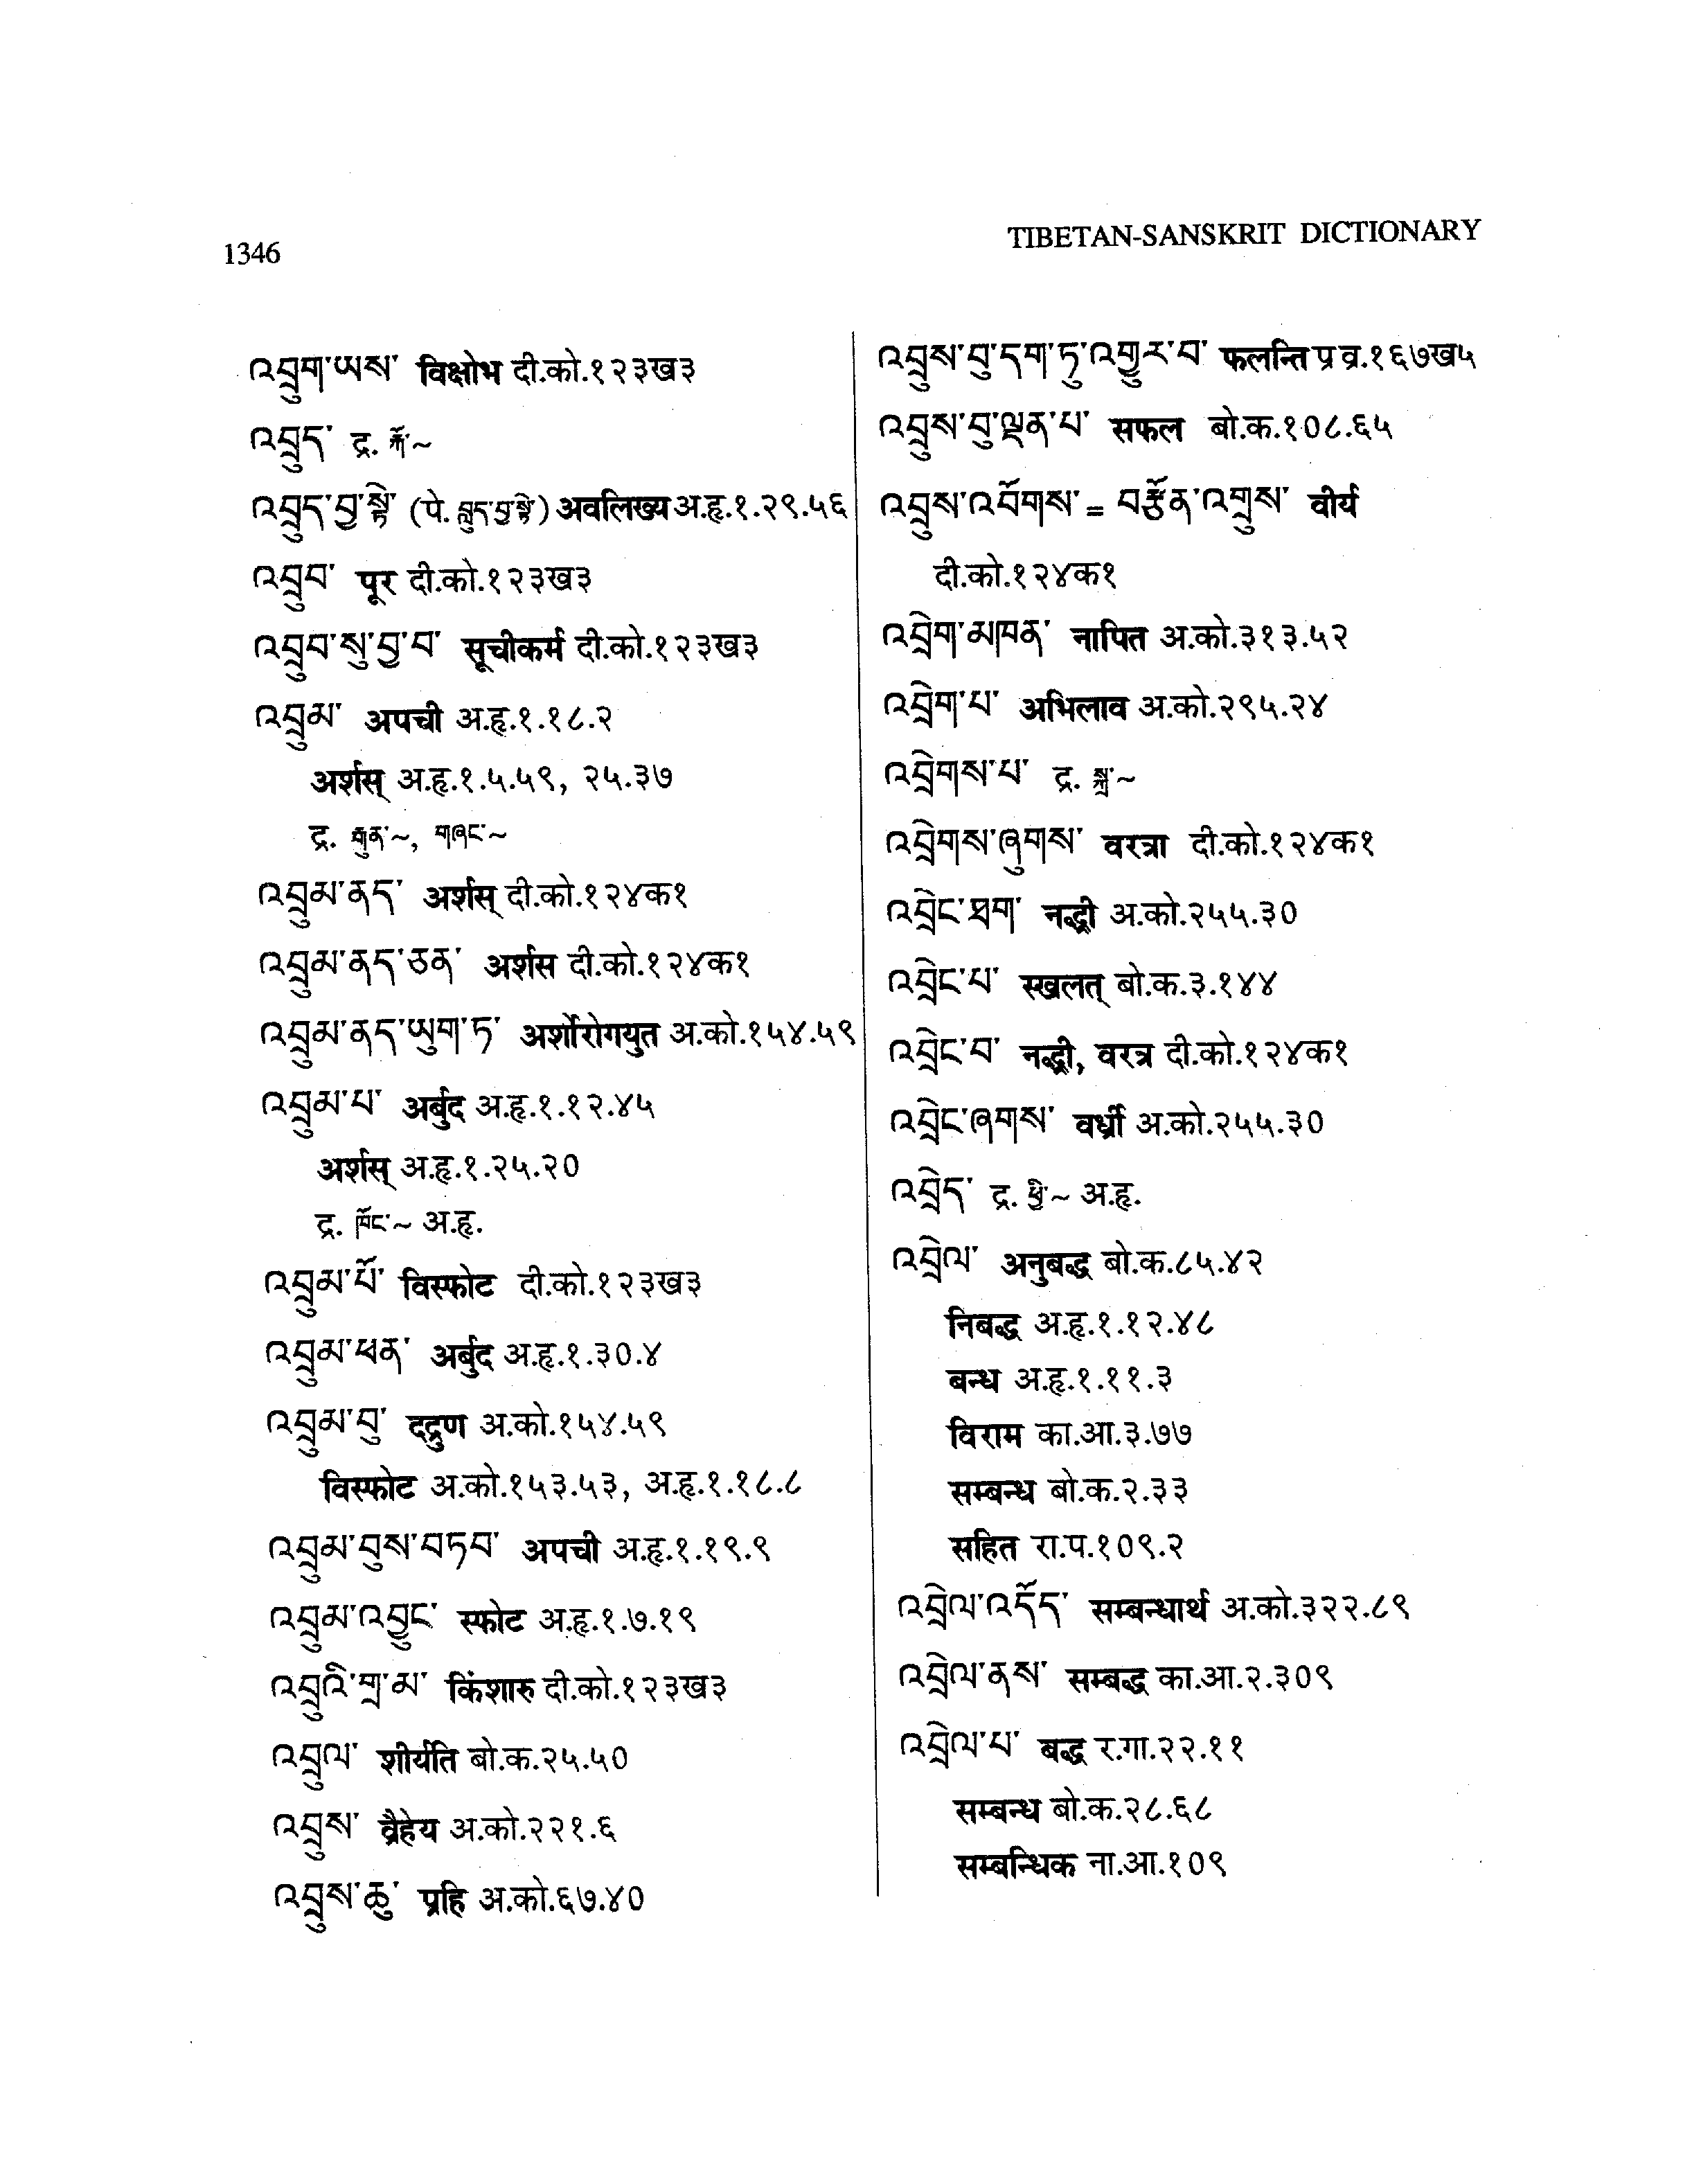 1346
TIBETAN-SANSKRIT DICTIONARY
འབྲུག་ཡས་ विक्षोभ दी.को.१२३ख३
འབྲུད་ द्र. རྐོ་~
འབྲུད་བྱ་སྟེ་ (पे. བླུད་བྱ་སྟེ་) अवलिख्य अ.हृ.१.२९.५६
འབྲུབ་ पूर दी.को.१२३ख३
འབྲུབ་སུ་བྱ་བ་ सूचीकर्म दी.को.१२३ख३
འབྲུམ་ अपची अ.हृ.१.१८.२
अर्शस् अ.हृ.१.५.५९, २५.३७
द्र. རྒུན་~, གཞང་~
འབྲུམ་ནད་ अर्शस् दी.को.१२४क१
འབྲུམ་ནད་ཅན་ अर्शस दी.को.१२४क१
འབྲུམ་ནད་ཡུག་ཏ་ अर्शोरोगयुत अ.को.१५४.५९
འབྲུམ་པ་ अर्बुद अ.हृ.१.१२.४५
अर्शस् अ.हृ.१.२५.२०
द्र. ཁོང་~ अ.हृ.
འབྲུམ་པོ་ विस्फोट दी.को.१२३ख३
འབྲུམ་ཕན་ अर्बुद अ.हृ.१.३०.४
འབྲུམ་བུ་ दद्रुण अ.को.१५४.५९
विस्फोट अ.को.१५३.५३, अ.हृ.१.१८.८
འབྲུམ་བུས་བཏབ་ अपची अ.हृ.१.१९.९
འབྲུམ་འབྱུང་ स्फोट अ.हृ.१.७.१९
འབྲུའི་གྲ་མ་ किंशारु दी.को.१२३ख३
འབྲུལ་ शीर्यति बो.क.२५.५०
འབྲུས་ व्रैहेय अ.को.२२१.६
འབྲུས་ཆུ་ प्रहि अ.को.६७.४०
འབྲུས་བུ་དག་ཏུ་འགྱུར་བ་ फलन्ति प्र व्र.१६७ख५
འབྲུས་བུ་ལྡན་པ་ सफल बो.क.१०८.६५
འབྲུས་འབོགས་ = བརྩོན་འགྲུས་ वीर्य
दी.को.१२४क१
འབྲེག་མཁན་ नापित अ.को.३१३.५२
འབྲེག་པ་ अभिलाव अ.को.२९५.२४
འབྲེགས་པ་ द्र. སྐྲ་~
འབྲེགས་ཞུགས་ वरत्रा दी.को.१२४क१
འབྲེང་ཐག་ नद्ध्री अ.को.२५५.३०
འབྲེང་པ་ स्खलत् बो.क.३.१४४
འབྲེང་བ་ नद्ध्री, वरत्र दी.को.१२४क१
འབྲེང་ཞགས་ वर्ध्री अ.को.२५५.३०
འབྲེད་ द्र. ཕྱི་~ अ.हृ.
འབྲེལ་ अनुबद्ध बो.क.८५.४२
निबद्ध अ.हृ.१.१२.४८
बन्ध अ.हृ.१.११.३
विराम का.आ.३.७७
सम्बन्ध बो.क.२.३३
सहित रा.प.१०९.२
འབྲེལ་འདོད་ सम्बन्धार्थ अ.को.३२२.८९
འབྲེལ་ནས་ सम्बद्ध का.आ.२.३०९
འབྲེལ་པ་ बद्ध र.गा.२२.११
सम्बन्ध बो.क.२८.६८
सम्बन्धिक ना.आ.१०९